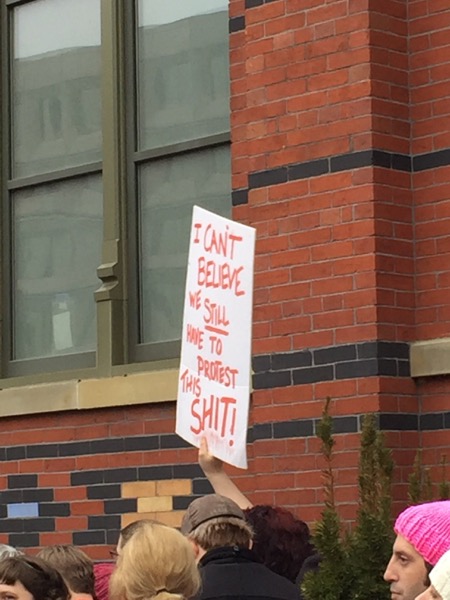 I CAN'T
BELIEVE
WE STILL
HAVE TO
PROTEST
THIS
SHIT!